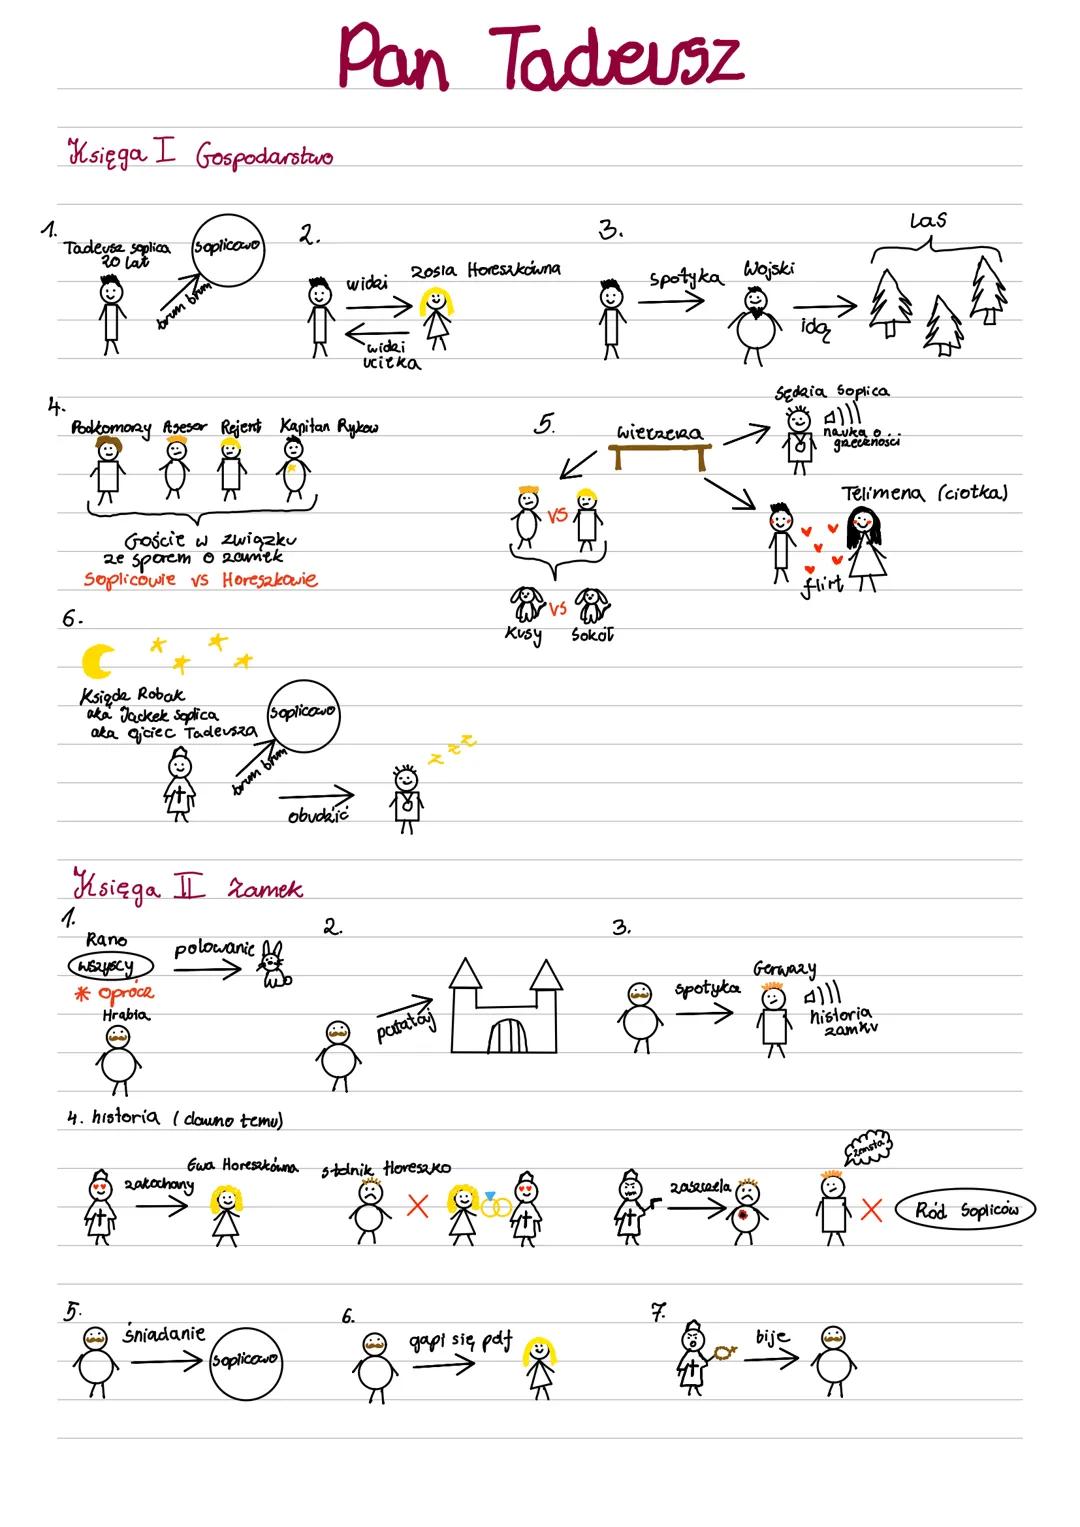 Pan Tadeusz
Księga I Gospodarstwo
1.
Tadeusz Soplica
20 lat
Soplicowo
brum brum
2.
widzi
Zosia Horeszkówna
widzi
ucieka
3.
spotyka
Wojski
idą
Las
4.
Podkomorzy Asesor Rejent Kapitan Rykow
Goście w związku
ze sporem o zamek
Soplicowie vs Horeszkowie
5.
wieczerza
Sędzia Soplica
nauka o
grzeczności
VS
Telimena (ciotka)
flirt
VS
Kusy Sokół
6.
Ksiądz Robak
aka Jackek Soplica
aka ojciec Tadeusza
Soplicowo
brum brum
obudzić
z z z
Księga II Zamek
1.
Rano
wszyscy
polowanie
* oprócz
Hrabia
2.
patataj
3.
spotyka
Gerwazy
historia
zamku
4. historia (dawno temu)
zakochany
Ewa Horeszkówna
stolnik Horeszko
zastrzela
zemsta
Ród Sopliców
5.
śniadanie
Soplicowo
6.
gapi się pdf
7.
bije